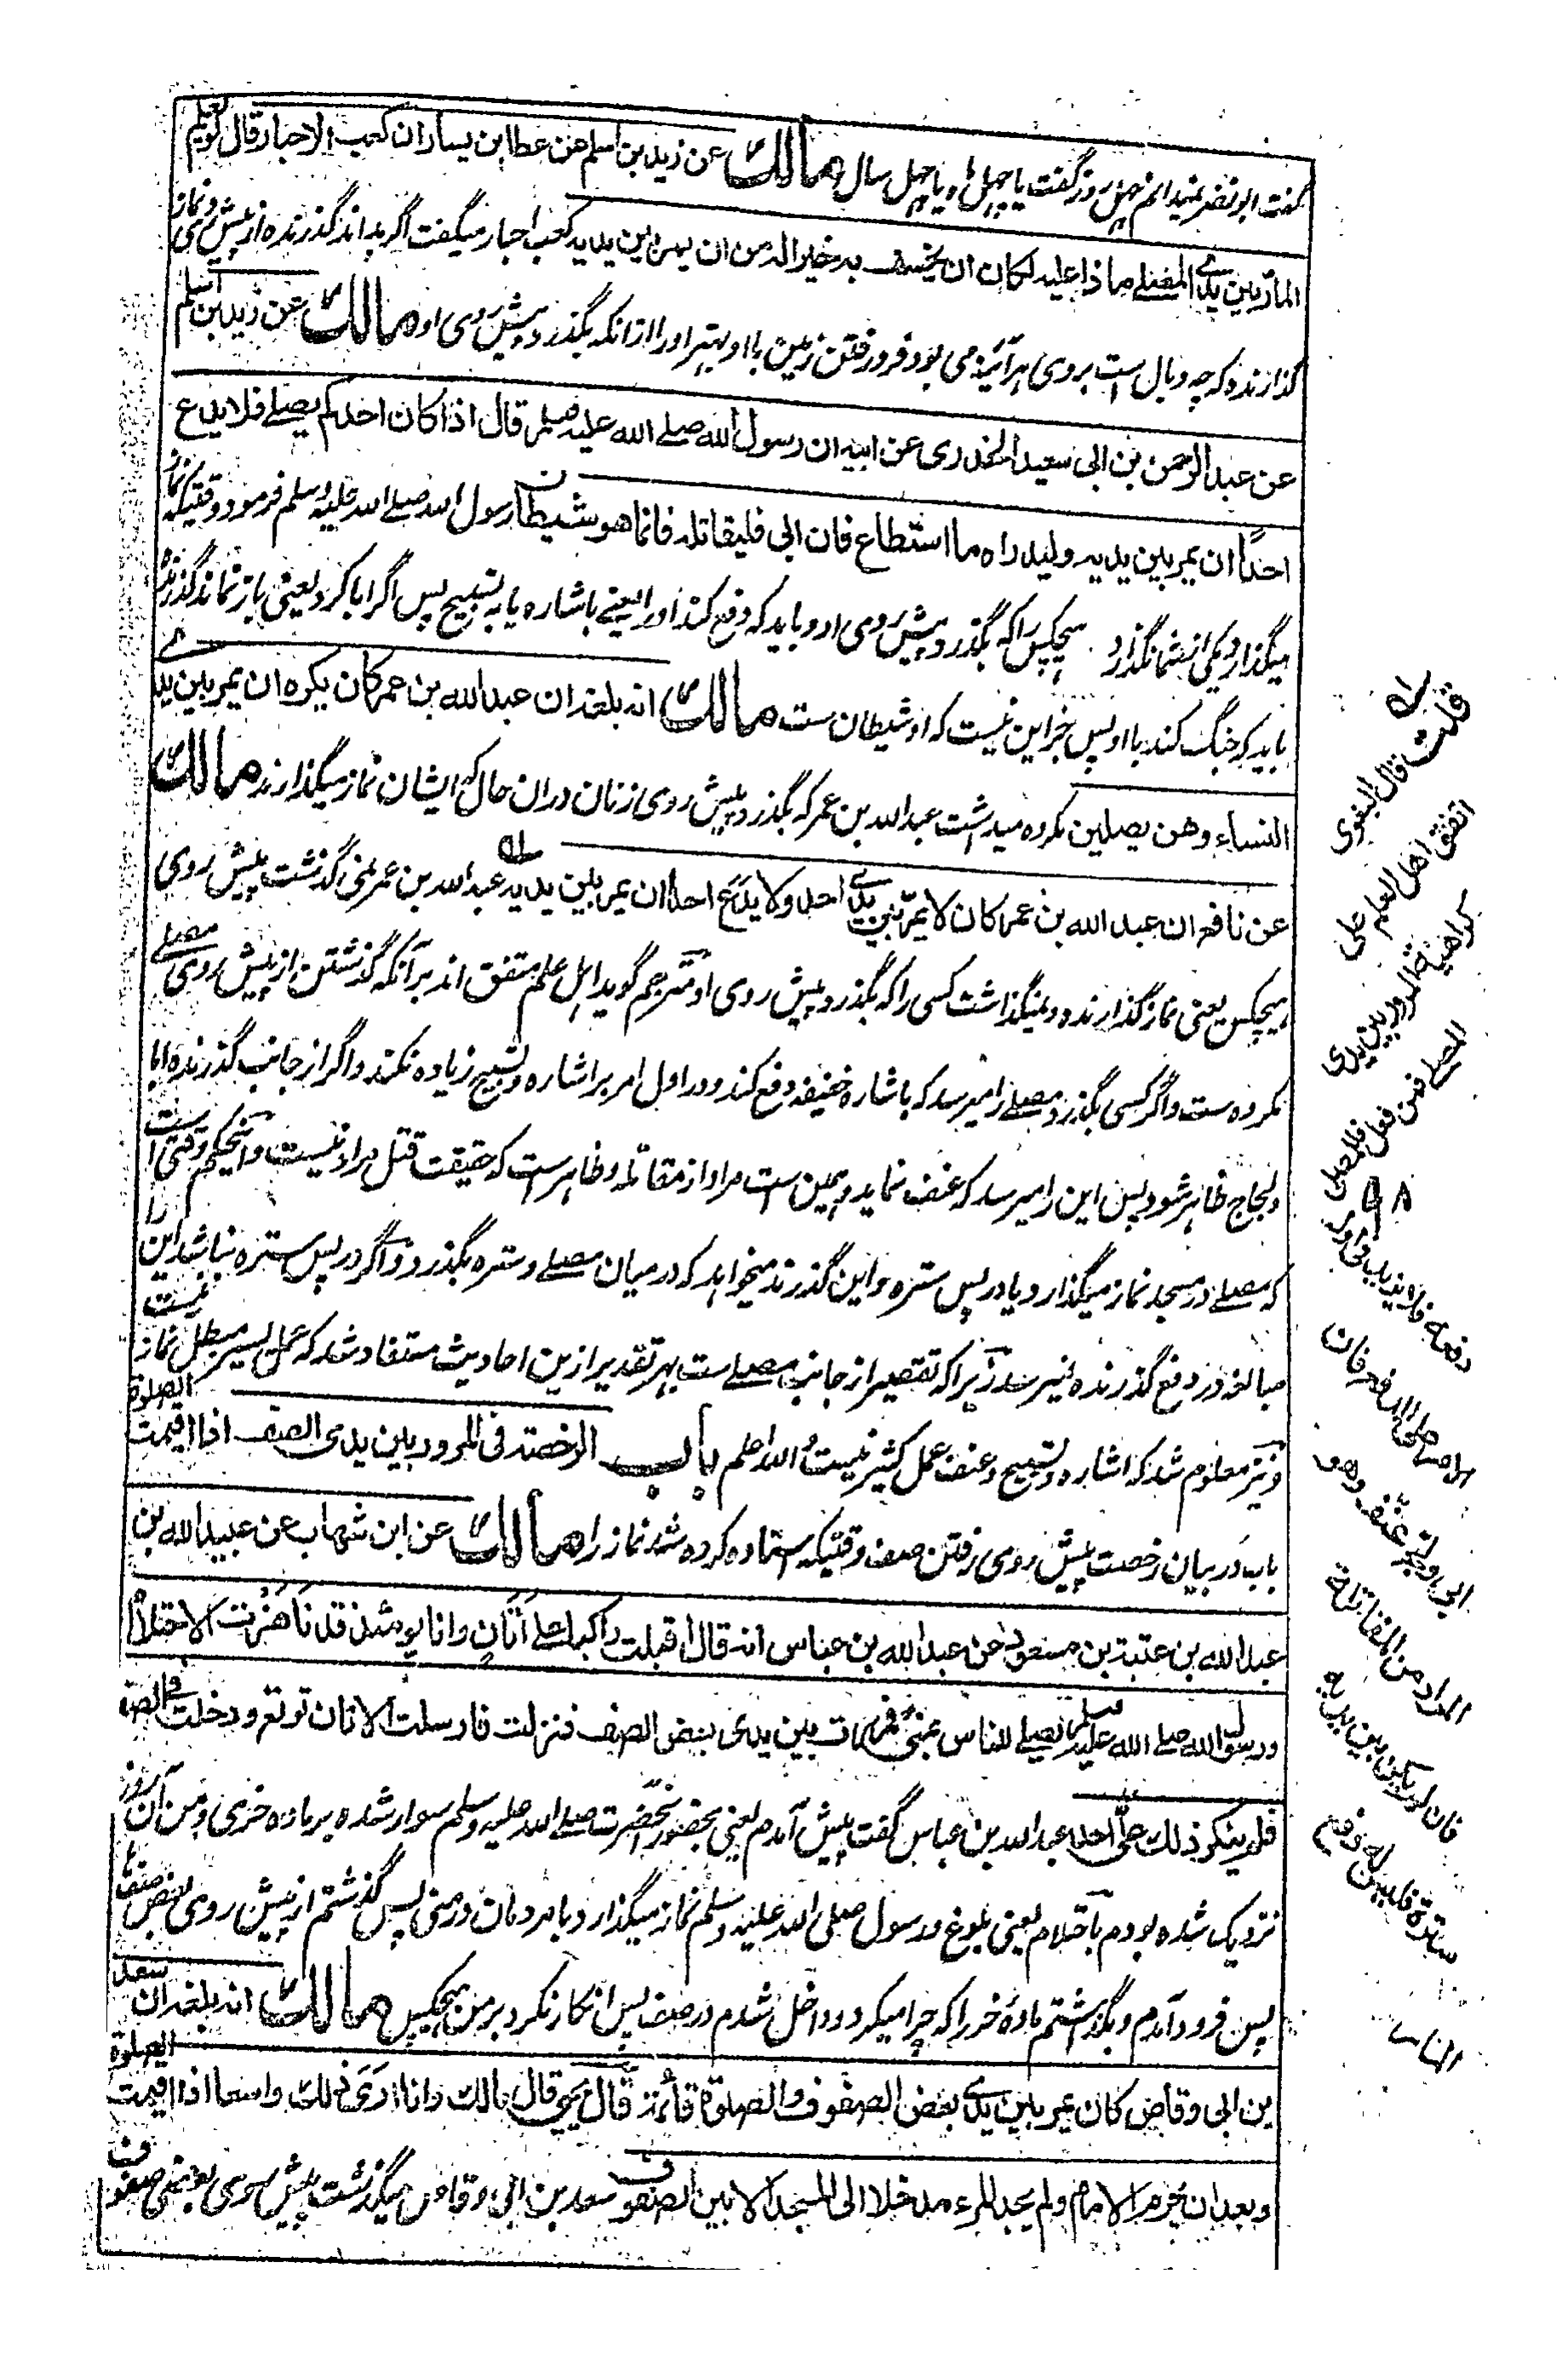 گفت ابو نضر نمیدانم چهل روز گفت یا چهل ماه یا چهل سال مالك عن زید بن اسلم عن عطا بن یسار ان کعب الاحبار قال لو یعلم
المار بین یدی المصلے ما ذا علیه لکان ان یخسف به خیرا له من ان یمر بین یدیه کعب احبار میگفت اگر بداند گذرنده از پیش روی نماز
گذارنده که چه وبال است بروی هر آئینه می بود فرو رفتن زمین با او بهتر او را از انکه بگذرد پیش روی او مالك عن زید بن اسلم
عن عبد الرحمن بن ابی سعید الخدری عن ابیه ان رسول الله صلے الله علیه وسلم قال اذا کان احدکم یصلے فلا یدع
احدًا ان یمر بین یدیه ولیدراه ما استطاع فان ابی فلیقاتله فانما هو شیطان رسول الله صلے الله علیه وسلم فرمود وقتیکه نماز
میگذارد یکی از شما نگذارد هیچکس را که بگذرد پیش روی او و باید که دفع کند او را یعنے باشاره یا به تسبیح پس اگر ابا کرد یعنی باز نماند گذرنده
باید که جنگ کند با او پس جز این نیست که او شیطان ست مالك انه بلغه ان عبد الله بن عمر کان یکره ان یمر بین یدی
النساء وهن یصلین مکروه میداشت عبد الله بن عمر که بگذرد پیش روی زنان دران حال که ایشان نماز میگذارند مالك
عن نافع ان عبد الله بن عمر کان لا یمر بین یدی احد ولا یدع احدا ان یمر بین یدیه عبد الله بن عمر نمی گذشت پیش روی
هیچکس یعنی نماز گذارنده و نمیگذاشت کسی را که بگذرد پیش روی او مترجم گوید اهل علم متفق اند بر آنکه گذشتن از پیش روی مصلے
مکروه ست و اگر کسی بگذرد مصلے را میرسد که باشاره خفیفه دفع کند و در اول امر بر اشاره و تسبیح زیاده نکند و اگر از جانب گذرنده ابا
و لجاج ظاهر شود پس این را میرسد که عنف نماید و همین ست مراد از مقاتله و ظاهر ست که حقیقت قتل مراد نیست و اینحکم وقتی است
که مصلے در مسجد نماز میگذارد و یا در پس ستره و این گذرنده میخواهد که در میان مصلے و ستره بگذرد و اگر در پس ستره نباشد این را
مبالغه در دفع گذرنده نمیرسد زیرا که تقصیر از جانب مصلے ست بهر تقدیر ازین احادیث مستفاد شد که عمل یسیر مبطل نماز نیست
و نیز معلوم شد که اشاره و تسبیح و عنف عمل کثیر نیست و الله اعلم باب الرخصة فی المرور بین یدی الصف اذا اقیمت الصلوة
باب در بیان رخصت پیش روی رفتن صف وقتیکه استاده کرده شد نماز را مالك عن ابن شهاب عن عبید الله بن
عبد الله بن عتبة بن مسعود عن عبد الله بن عباس انه قال اقبلت راکبا علے اتان وانا یومئذ قد ناهزت الاحتلام
ورسول الله صلے الله علیه وسلم یصلے للناس بمنی فمررت بین یدی بعض الصف فنزلت فارسلت الاتان ترتع ودخلت فی الصف
فلم ینکر ذلك علی احد عبد الله بن عباس گفت پیش آمدم یعنی بحضور آنحضرت صلے الله علیه وسلم سوار شده بر ماده خری و من آن روز
نزدیک شده بودم باحتلام یعنی بلوغ و رسول صلی الله علیه وسلم نماز میگذارد با مردمان در منی پس گذشتم از پیش روی بعض صف
پس فرود آمدم و بگذاشتم ماده خر را که چرا میکرد و داخل شدم در صف پس انکار نکرد بر من هیچکس مالك انه بلغه ان سعد
بن ابی وقاص کان یمر بین یدی بعض الصفوف والصلوة قائمة قال یحیی قال مالك وانا اری ذلك واسعا اذا اقیمت الصلوة
وبعد ان یحرم الامام ولم یجد المرء مدخلا الی المسجد الا بین الصفوف سعد بن ابی وقاص میگذشت پیش روی بعض صفوف
قلت قال البغوی
اتفق اهل العلم علی
کراهیة المرور بین یدی
المصلے فمن فعل فللمصلی
دفعه ولا یزید فی اول
الامر علی الاشارة فان
ابی ولج عنّف وهو
المراد من المقاتلة
فان لم یکن بین یدیه
سترة فلیس له دفع
الناس